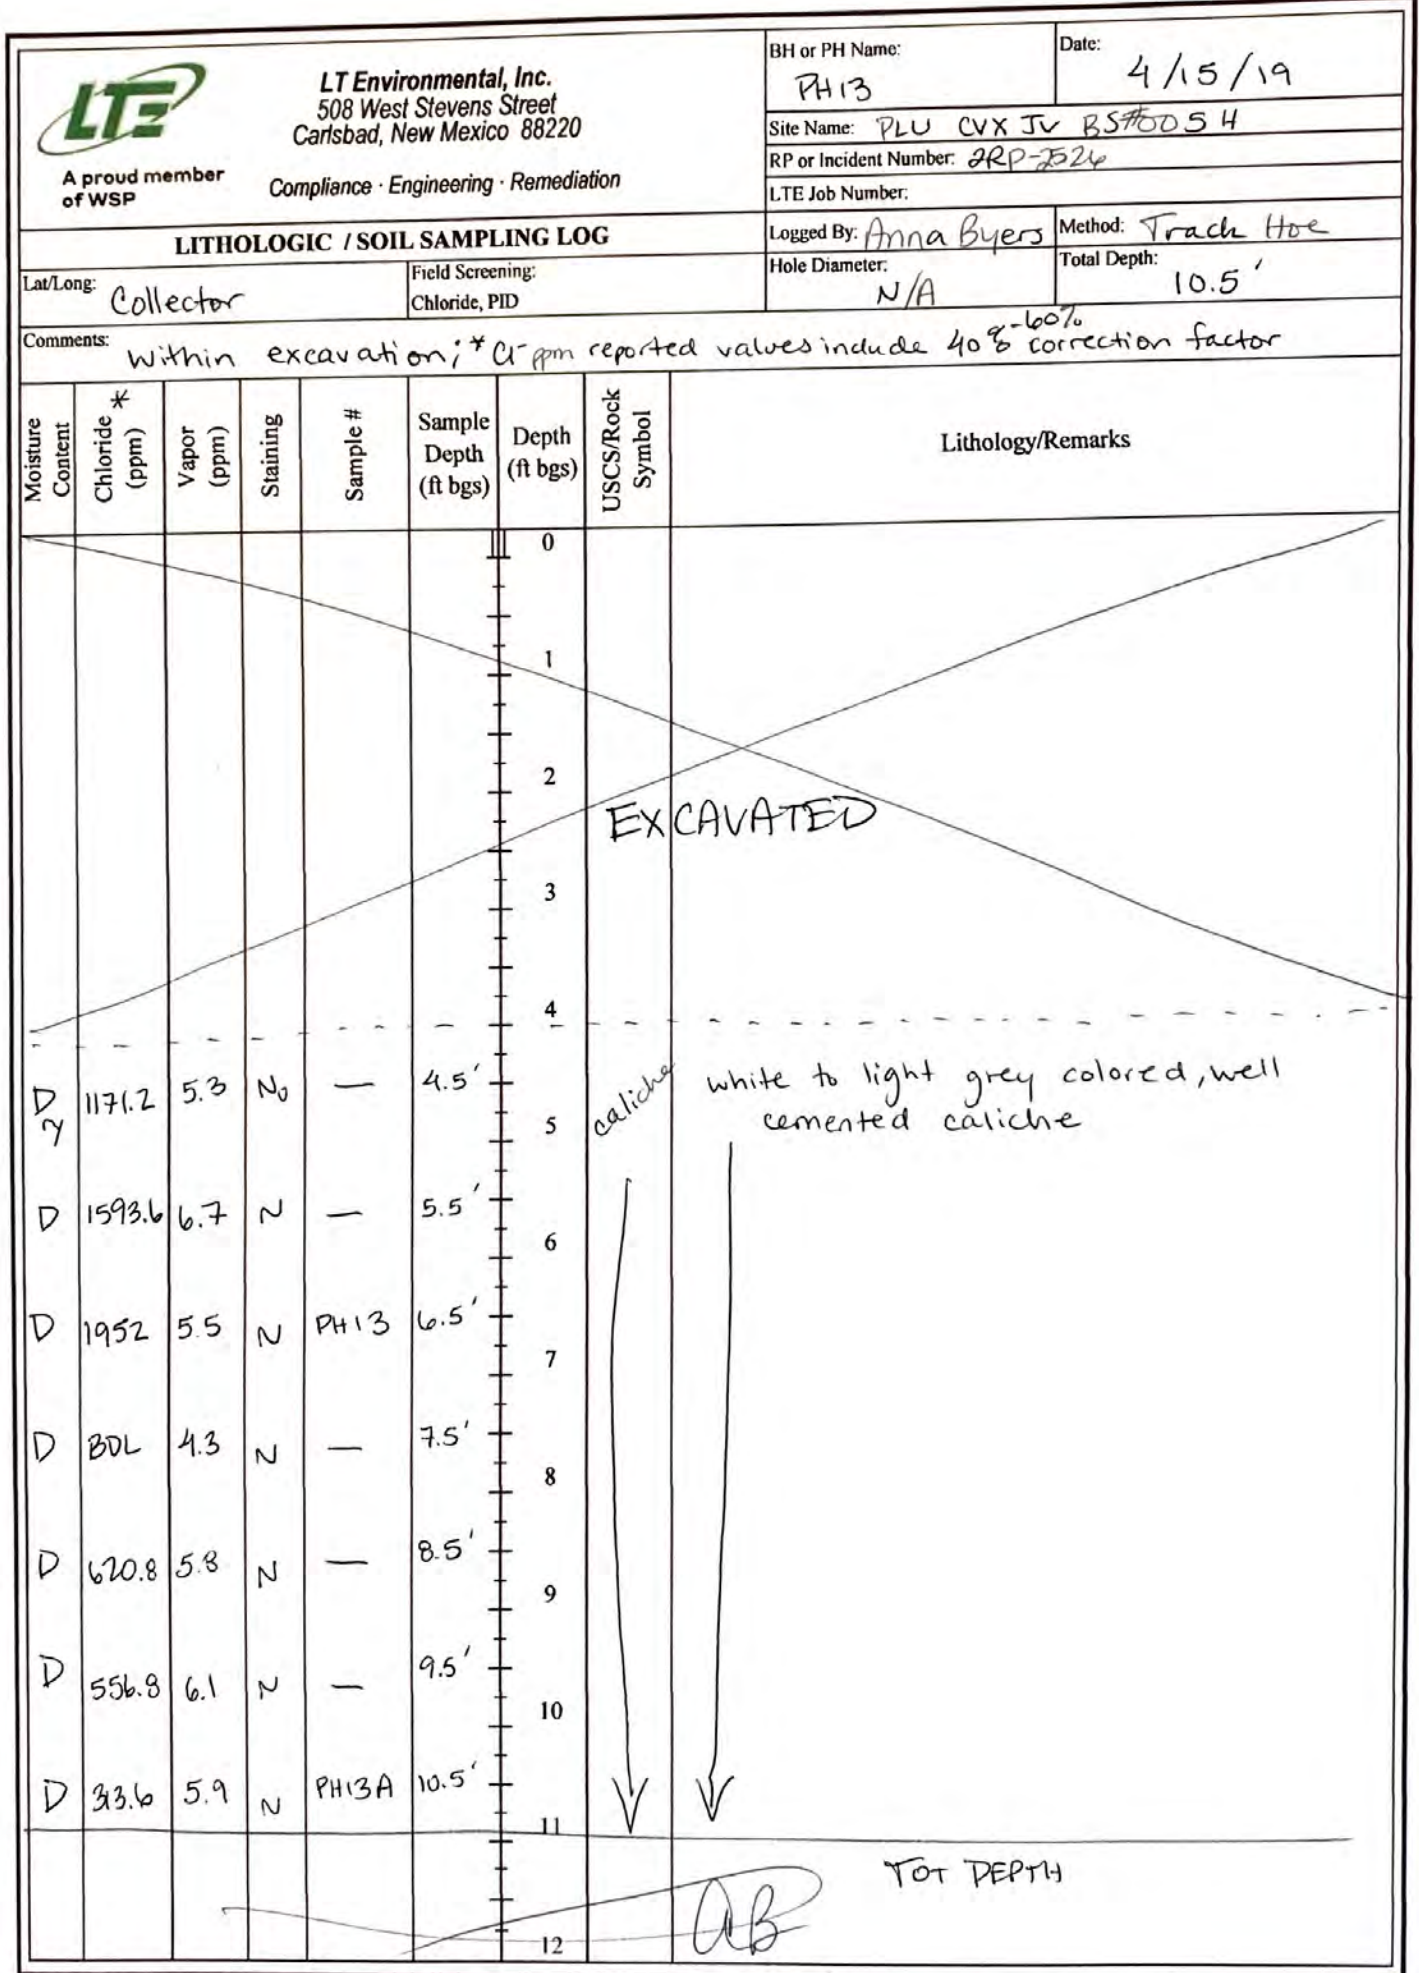 LTE
A proud member
of WSP
LT Environmental, Inc.
508 West Stevens Street
Carlsbad, New Mexico 88220
Compliance · Engineering · Remediation
BH or PH Name: PH13
Date: 4/15/19
Site Name: PLU CVX JV BS#005H
RP or Incident Number: 2RP-2526
LTE Job Number:
LITHOLOGIC / SOIL SAMPLING LOG
Logged By: Anna Byers
Method: Track Hoe
Lat/Long: Collector
Field Screening:
Chloride, PID
Hole Diameter: N/A
Total Depth: 10.5'
Comments: Within excavation; * Cl- ppm reported values include 40%-60% correction factor
Moisture Content
Chloride * (ppm)
Vapor (ppm)
Staining
Sample #
Sample Depth (ft bgs)
Depth (ft bgs)
USCS/Rock Symbol
Lithology/Remarks
0
1
2
EXCAVATED
3
4
Dry 1171.2 5.3 No — 4.5' caliche white to light grey colored, well
5 cemented caliche
D 1593.6 6.7 N — 5.5'
6
D 1952 5.5 N PH13 6.5'
7
D BDL 4.3 N — 7.5'
8
D 620.8 5.8 N — 8.5'
9
D 556.8 6.1 N — 9.5'
10
D 313.6 5.9 N PH13A 10.5'
11
TOT DEPTH
AB
12